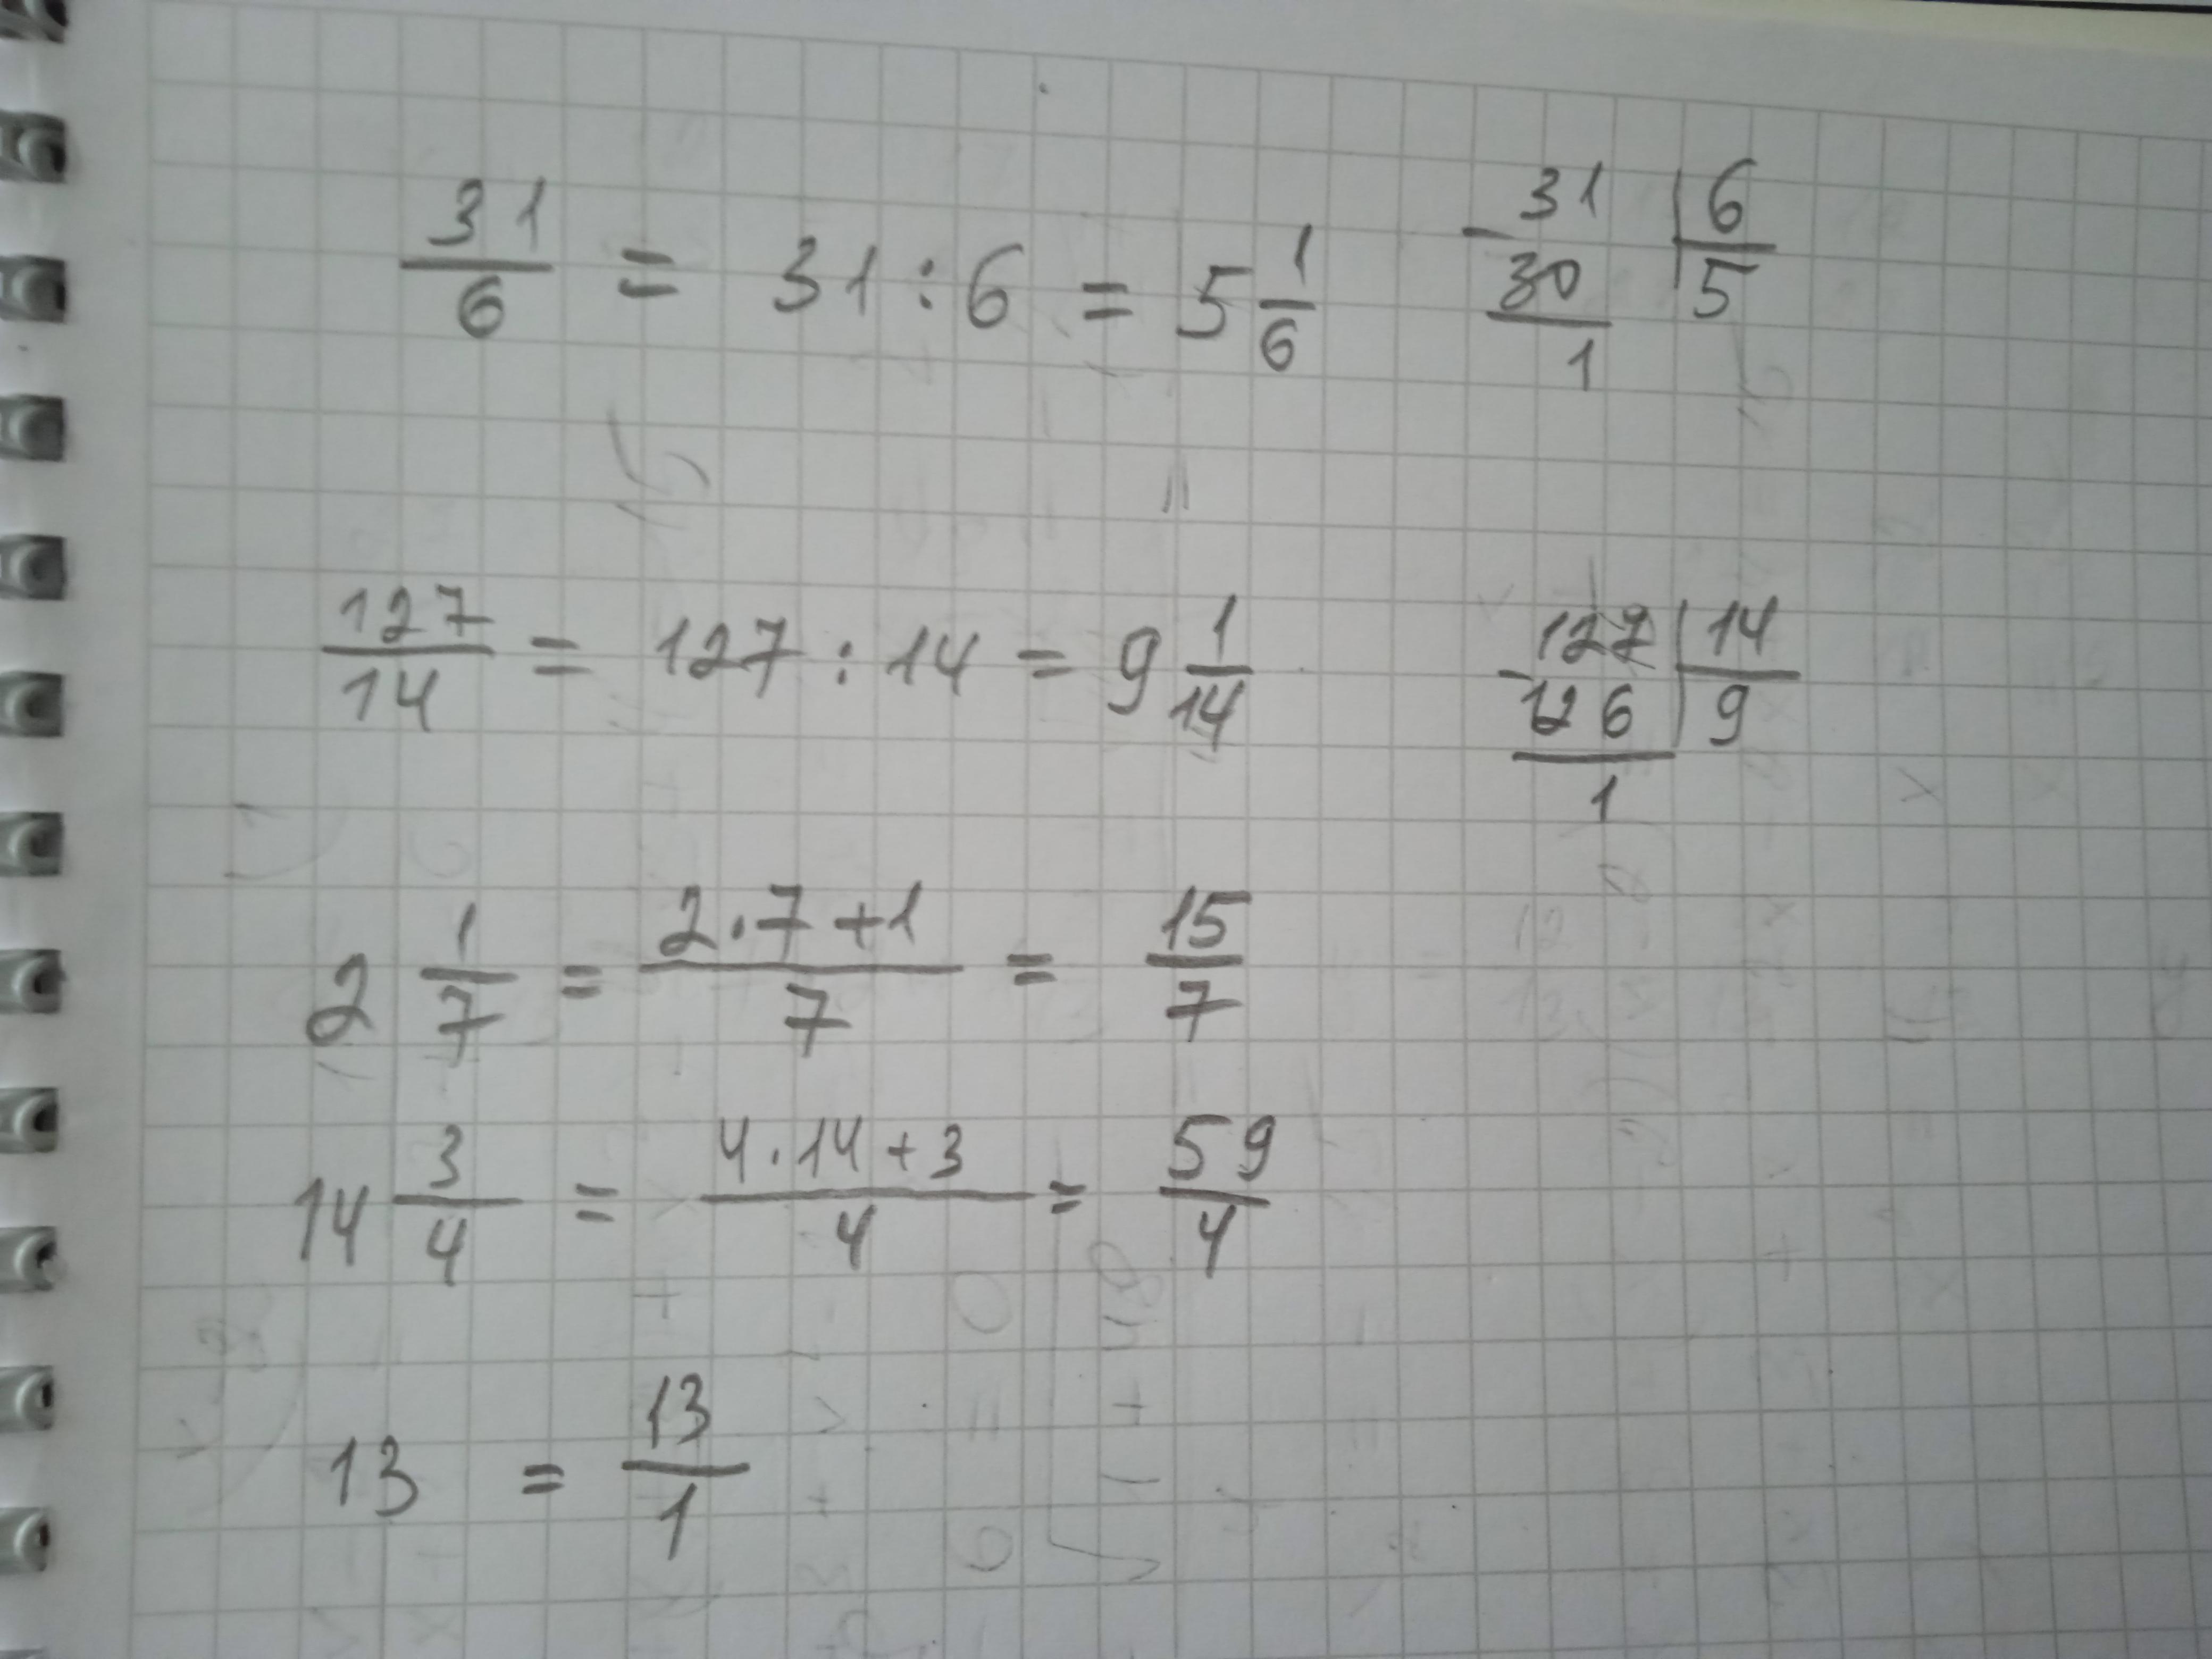 31/6 = 31 : 6 = 5 1/6
31 | 6
- 30 | 5
1
127/14 = 127 : 14 = 9 1/14
127 | 14
- 126 | 9
1
2 1/7 = (2·7+1)/7 = 15/7
14 3/4 = (4·14+3)/4 = 59/4
13 = 13/1